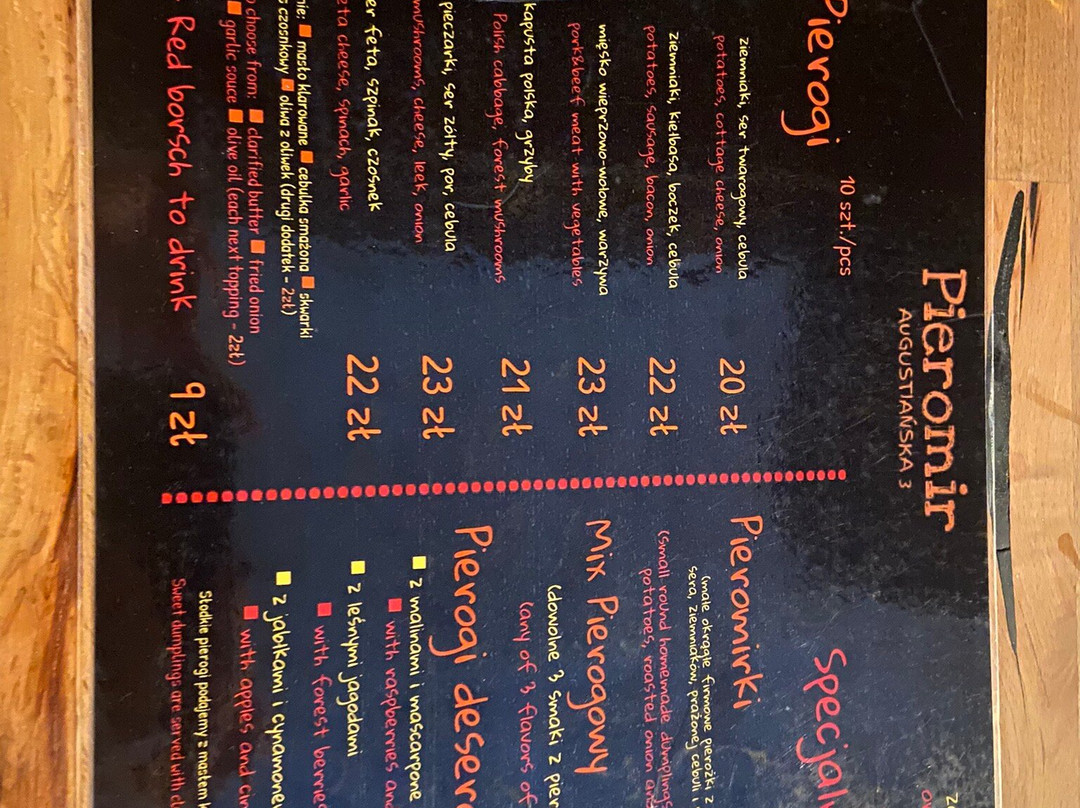 Pieromir
AUGUSTIAŃSKA 3
Pierogi 10 szt./pcs
ziemniaki, ser twarogowy, cebula
potatoes, cottage cheese, onion
20 zł
ziemniaki, kiełbasa, boczek, cebula
potatoes, sausage, bacon, onion
22 zł
mięsko wieprzowo-wołowe, warzywa
pork&beef meat with vegetables
23 zł
kapusta polska, grzyby
Polish cabbage, forest mushrooms
21 zł
pieczarki, ser żółty, por, cebula
mushrooms, cheese, leek, onion
23 zł
er feta, szpinak, czosnek
eta cheese, spinach, garlic
22 zł
nie: masło klarowane cebulka smażona skwarki
czosnkowy oliwa z oliwek (drugi dodatek - 2zł)
choose from: clarified butter fried onion
garlic sauce olive oil (each next topping - 2zł)
Red borsch to drink 9 zł
Specjaln
Pieromirki
(małe okrągłe firmowe pierożki z
sera, ziemniaków, prażonej cebuli i
(small round homemade dumplings
potatoes, roasted onion and
Mix Pierogowy
(dowolne 3 smaki z pier
(any of 3 flavors of
Pierogi deser
z malinami i mascarpone
with raspberries and
z leśnymi jagodami
with forest berries
z jabłkami i cynamonem
with apples and cin
Słodkie pierogi podajemy z masłem k
Sweet dumplings are served with cl